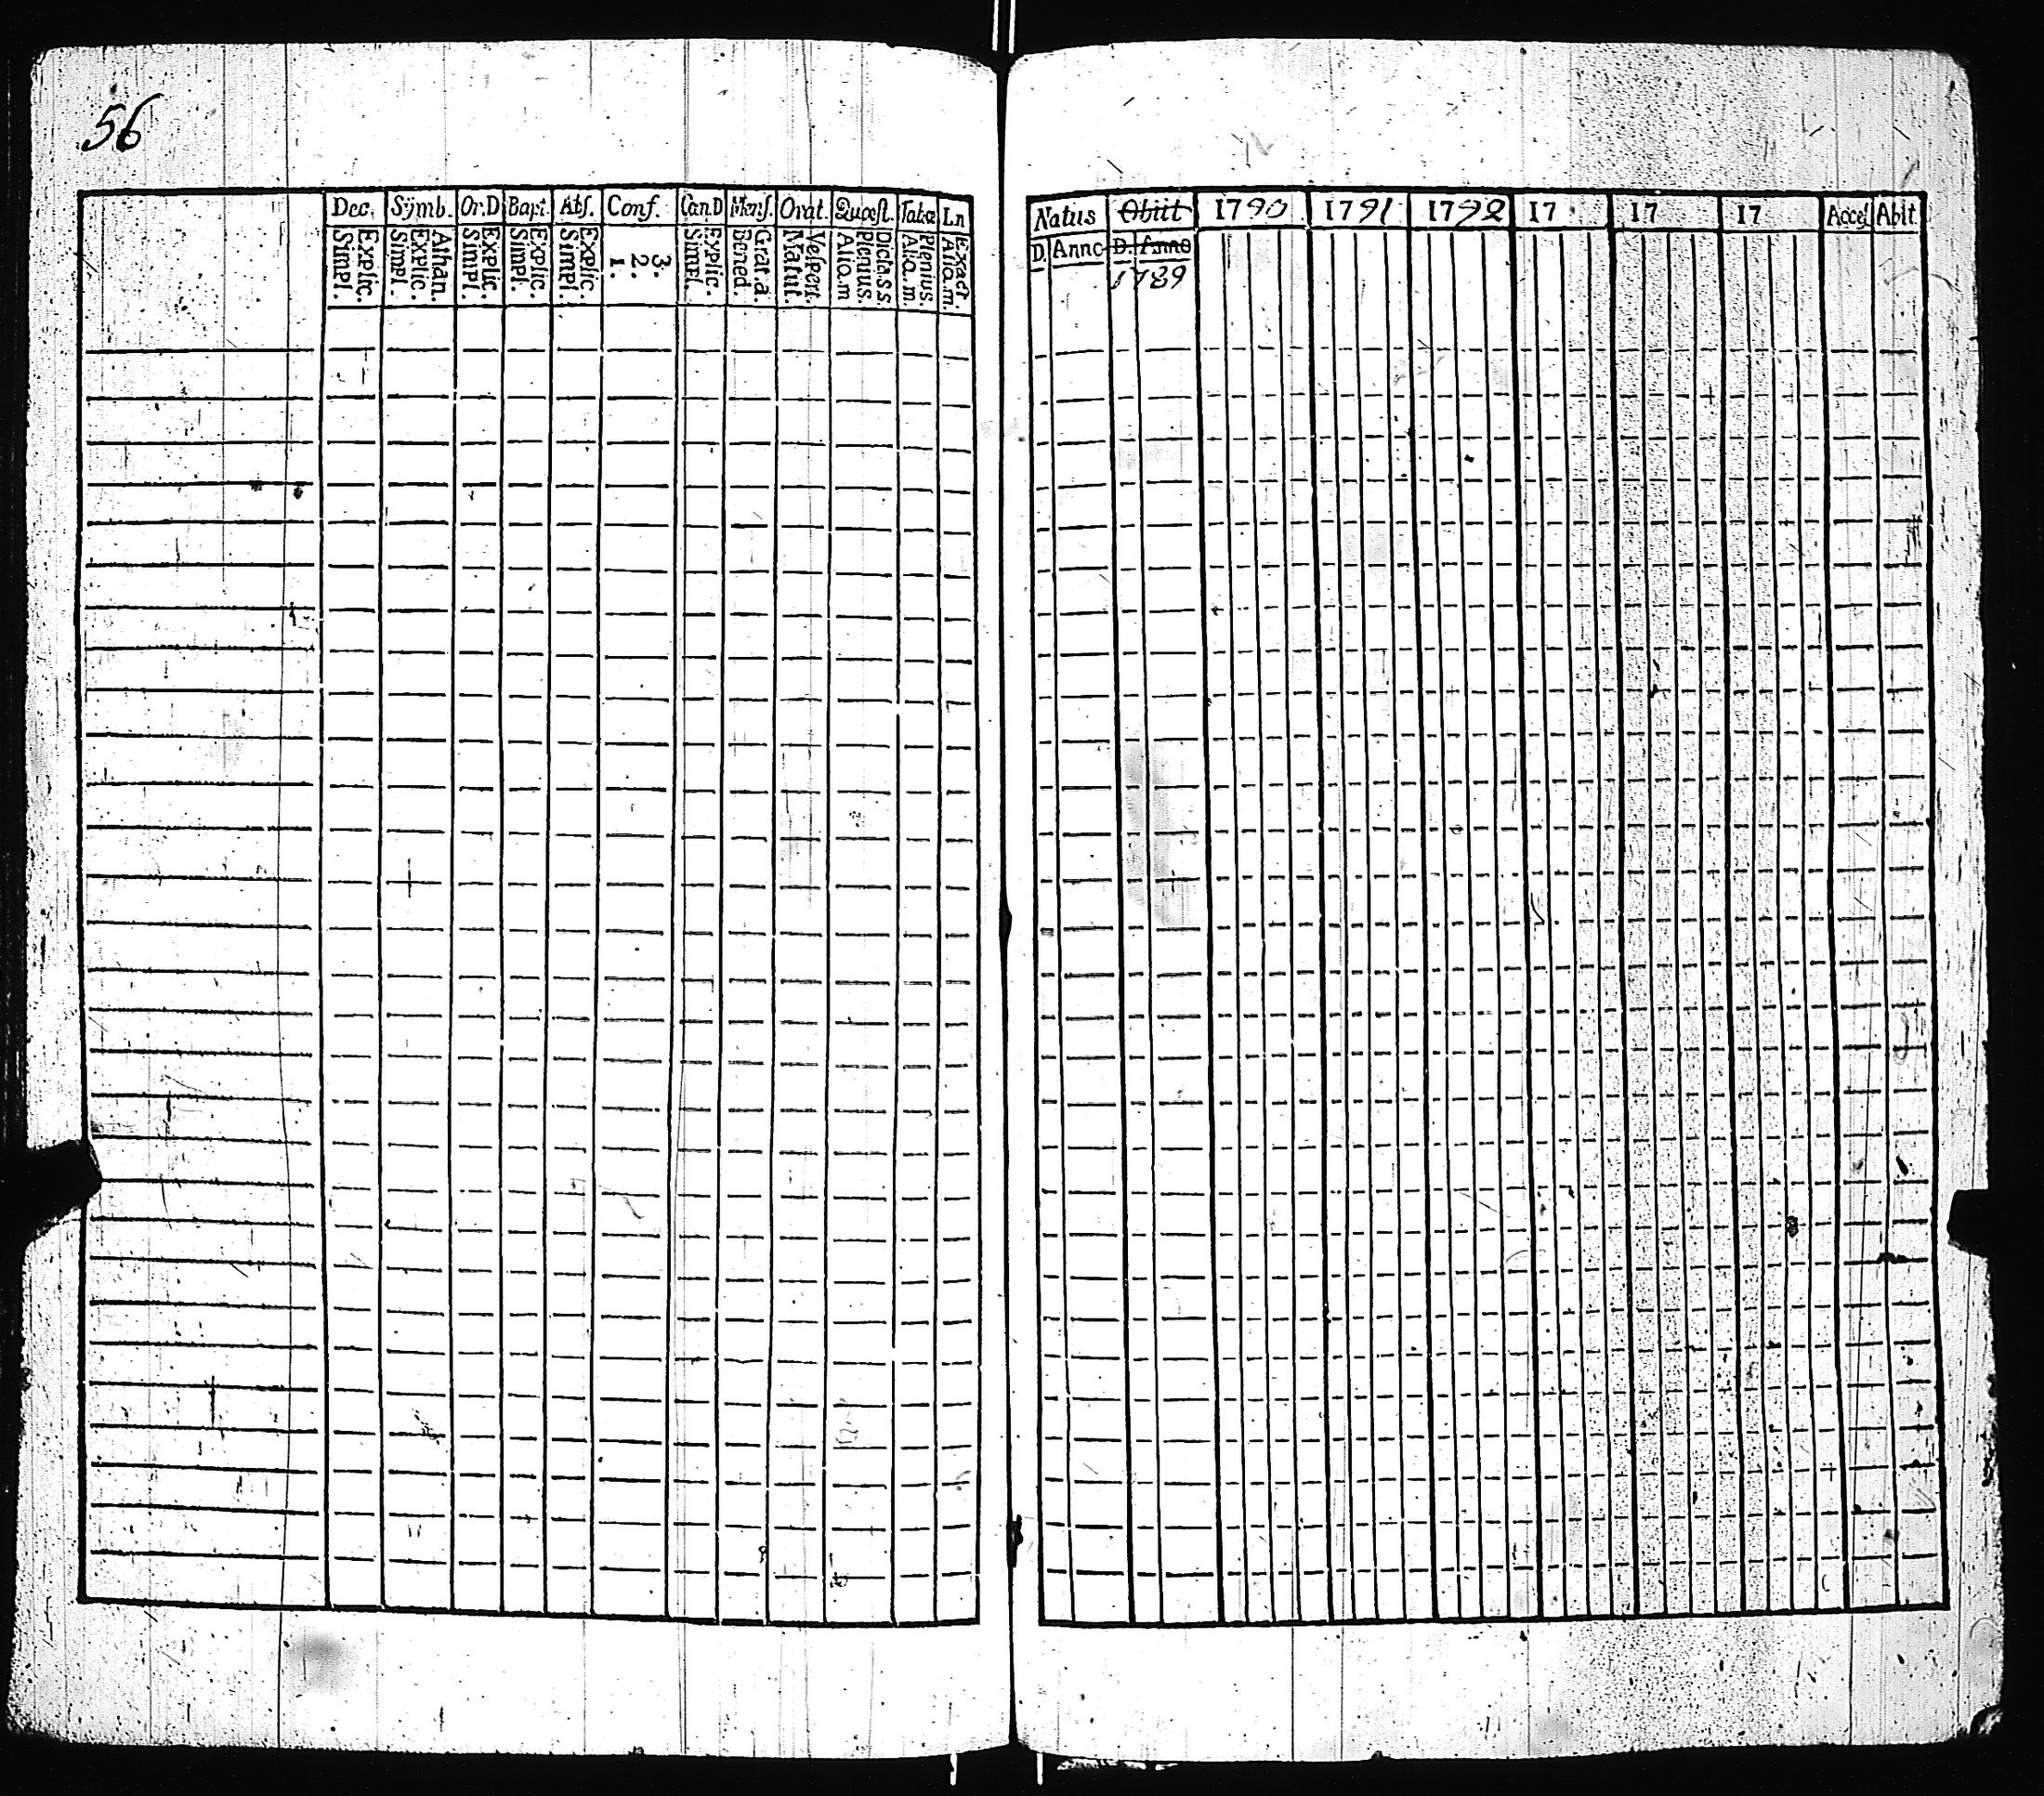 56
Dec. Symb. Or.D Bapt. Abs. Conf. Can.D Mens. Orat. Quæst. Tabæ Ln
Explic. Simpl. Athan. Explic. Simpl. Explic. Simpl. Explic. Simpl. Explic. Simpl. 3. 2. 1. Explic. Simpl. Grat. a. Bened. Vespert. Matut. Dicta.s.s Plenius. Alia.m Plenius. Alia.m. Exact. Alia.m.
Natus Obiit 1790 1791 1792 17 17 17 Acces. Abit
D. Anno D. Anno
1789